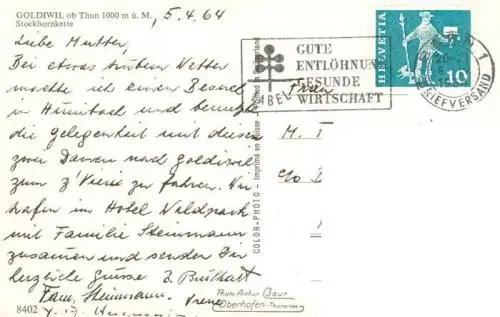 GOLDIWIL ob Thun 1000 m ü. M.
Stockhornkette
15.4.64
Liebe Mutter,
Bei etwas trübem Wetter
machte ich einen Besuch
in Hünibach und benutzte
die Gelegenheit mit diesen
zwei Damen nach Goldiwil
zum z'Vieri zu fahren. Wir
trafen im Hotel Waldpark
mit Familie Steinmann
zusammen und senden Dir
herzliche Grüsse
Fam. Steinmann. Vreni
8402
GUTE
ENTLÖHNUNG
GESUNDE
WIRTSCHAFT
LABEL
HELVETIA
10
BRIEFVERSAND
1
Frau
M.
c/o
COLOR-PHOTO - Imprimé en Suisse
Photo Arthur Baur
Oberhofen-Thunersee